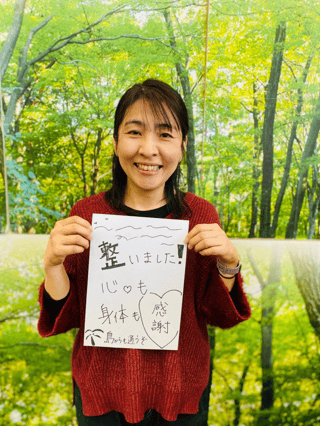 整いました!
心♡も
身体も
感
謝
島からも通うぞ